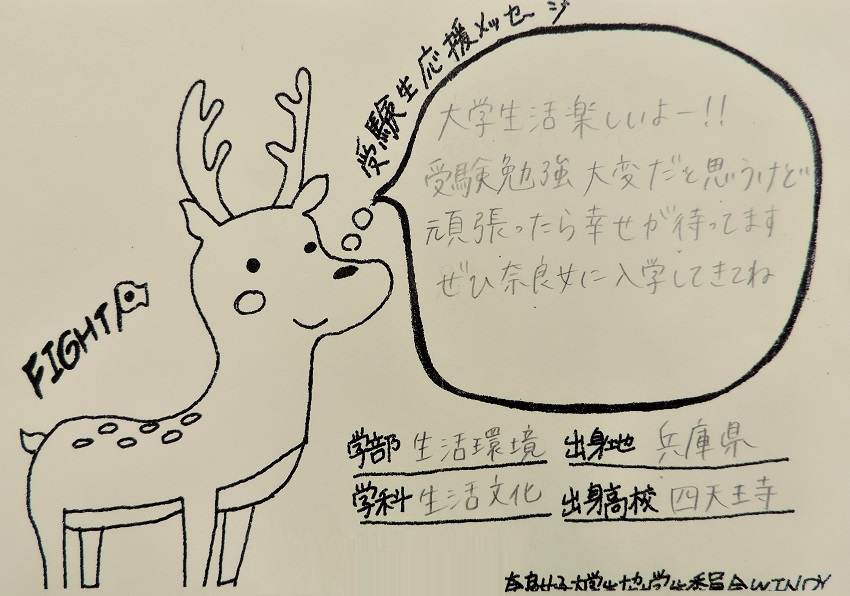 受験生応援メッセージ
大学生活楽しいよー!!
受験勉強大変だと思うけど
頑張ったら幸せが待ってます
ぜひ奈良女に入学してきてね
FIGHT
学部 生活環境 出身地 兵庫県
学科 生活文化 出身高校 四天王寺
奈良女子大学生協学生委員会WINDY